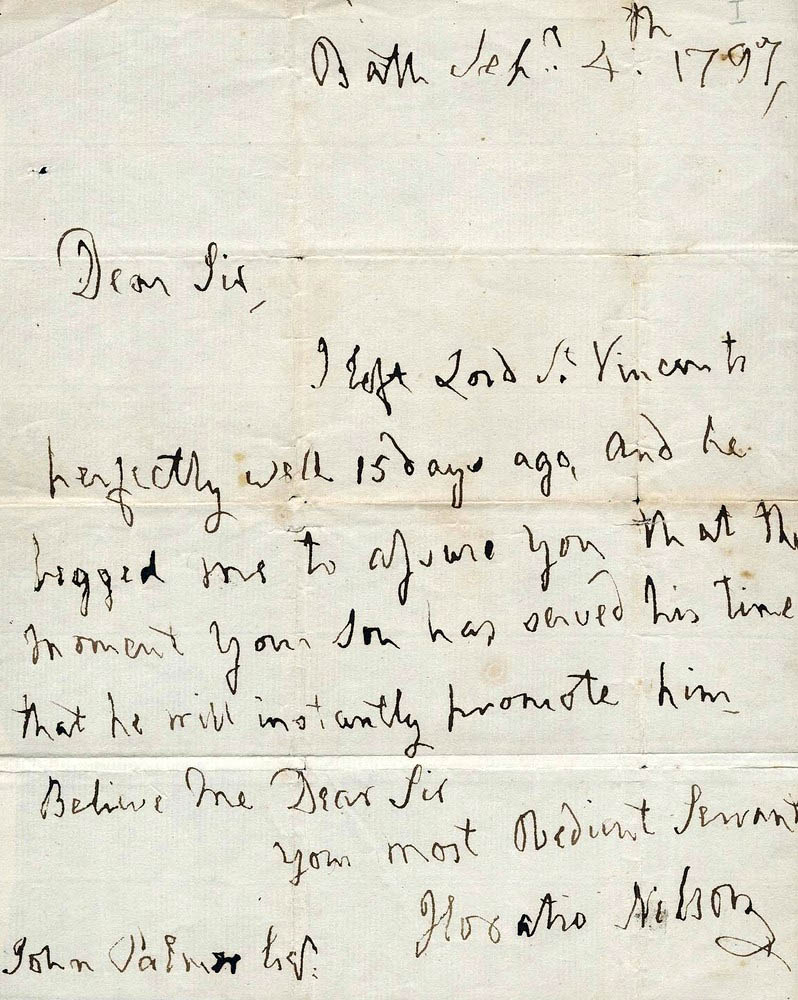 I
Bath Sepr. 4th. 1797,
Dear Sir,
I left Lord St Vincents
perfectly well 15 days ago, and he
begged me to assure you that the
moment your son has served his time
that he will instantly promote him
Believe me Dear Sir
your most Obedient Servant
Horatio Nelson
John Palmer Esq.